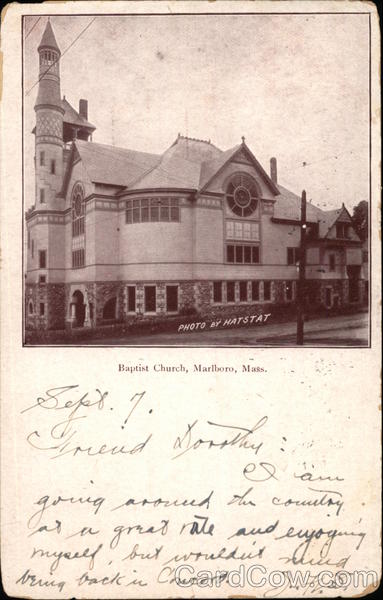 PHOTO BY HATSTAT
Baptist Church, Marlboro, Mass.
Sept. 7.
Friend Dorothy:
I am
going around the country
at a great rate and enjoying
myself, but wouldn't mind
being back in
CardCow.com